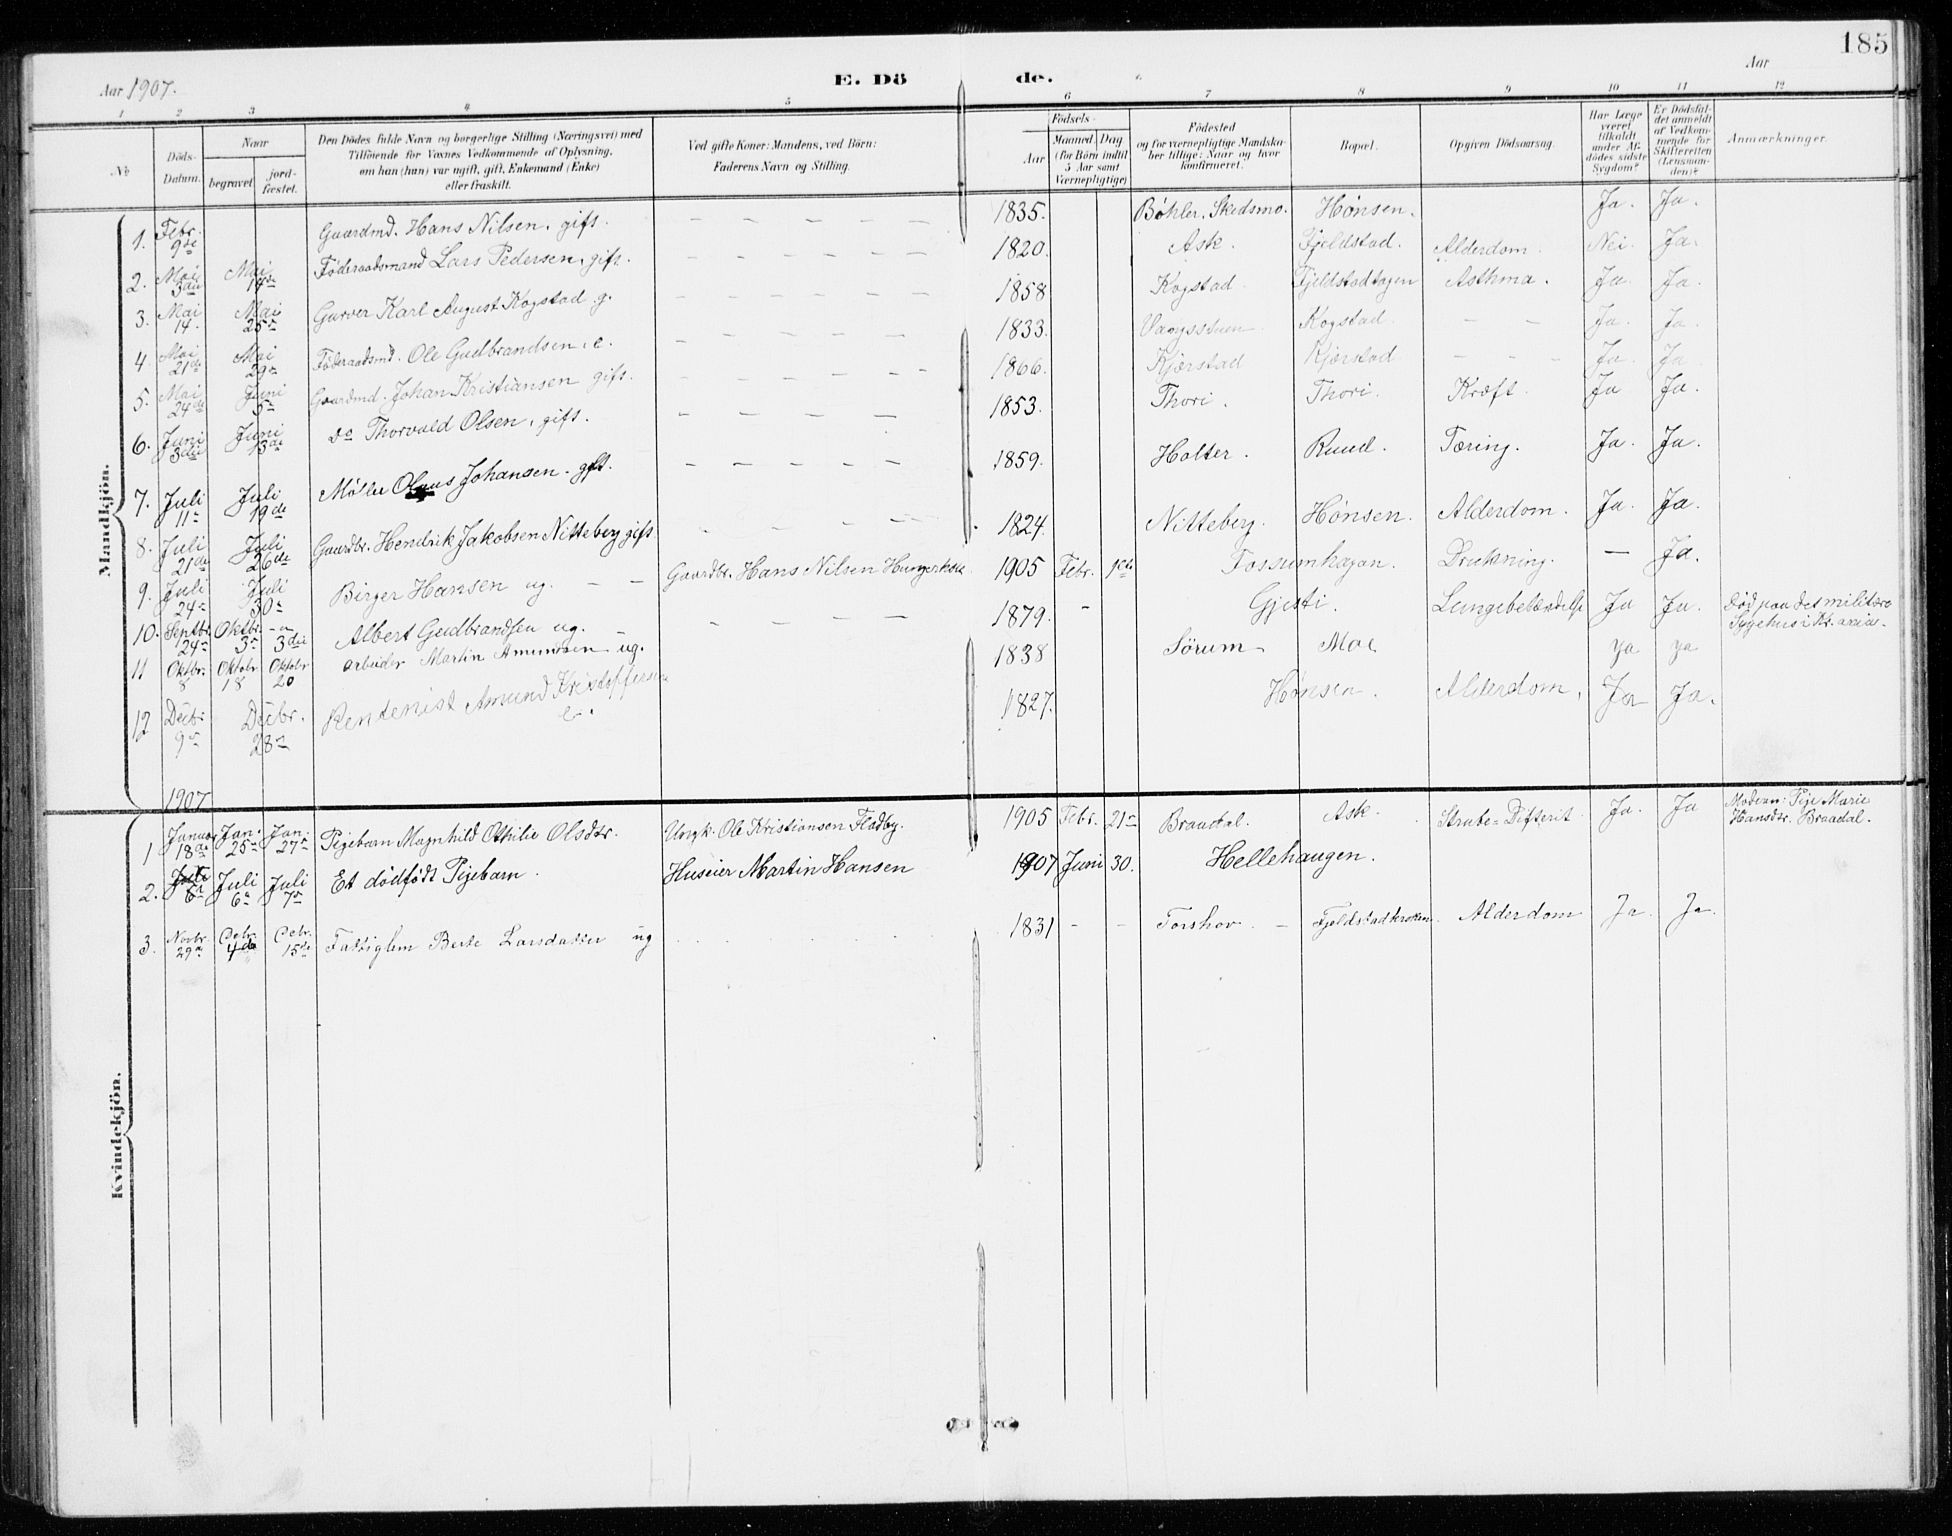 185
Aar 1907.
E. Dö
de.
Aar
1 2 3 4 5 6 7 8 9 10 11 12
No
Döds-Datum.
Naar
begravet.
jord-fæstet.
Den Dödes fulde Navn og borgerlige Stilling (Næringsvei) med
Tilföiende for Voxnes Vedkommende af Oplysning.
om han (hun) var ugift, gift, Enkemand (Enke)
eller fraskilt.
Ved gifte Koner: Mandens, ved Börn:
Faderens Navn og Stilling.
Födsels-
Aar
Maaned.
Dag
(for Börn indtil
5 Aar samt
Værnepligtige)
Födested
og for værnepligtige Mandska-
ber tillige: Naar og hvor
konfirmeret.
Bopæl.
Opgiven Dödsaarsag.
Har Læge
været
tilkaldt
under Af-
dödes sidste
Sygdom?
Er Dödsfal-
det anmeldt
af Vedkom-
mende for
Skifteretten
(Lensman-
den)?
Anmærkninger.
Mandkjön.
1. Febr. 9de Gaardmd. Hans Nilsen, gift. – – – – – – 1835. Bøhler, Skedsmo. Hønsen. Ja. Ja.
2. Mai 3die Mai 14de Føderaadsmand Lars Pedersen, gift. – – – – – – 1820. Ask. Fjeldstad. Alderdom. Nei. Ja.
3. Mai 14. Mai 25de Garver Karl August Kogstad g. – – – – – – 1858 Kogstad. Fjeldstadhagen Asthma. Ja. Ja.
4 Mai 21de Mai 29de Føderaadsmd. Ole Gudbrandsen, e. – – – – – – 1833. Kogstad. – – Ja. Ja
5. Mai 24de Juni 5te Gaardmd. Johan Kristiansen gift. – – – – – – 1866. Kjærstad Kjærstad – – – Ja Ja
6. Juni 3die Juni 13de Do Thorvald Olsen, gift. – – – – – 1853. Thori. Thori. Kræft. Ja Ja.
7. Juli 11te Juli 19de Møller Olaus Johansen. gift. – – – – – 1859. Holter. Ruud. Tæring. Ja. Ja.
8. Juli 21de Juli 26de Gaardbr. Hendrik Jakobsen Nitteberg gift – – – – – 1824. Nitteberg. Hønsen. Alderdom. Ja. Ja.
9. Juli 24de Juli 30te Birger Hansen ug. – – Gaardbr. Hans Nilsen 1905 Febr. 1ste Fossumhagan. Drukning. – Ja.
10. Septbr. 24de Oktbr. 3die –"– 3die Albert Gudbrandsen ug. – – – – – – 1879. – Gjesti. Lungebetændelse Ja Ja. Død paa det militære
Sygehus i Kr.ania.
11 Oktbr. 8 Oktobr 18 Oktobr 20 arbeider Martin Amundsen ug. 1838 Sørum Moe ja ja
12 Decbr. 9de Decbr. 28de Rentenist Amund Kristoffersen
e. 1827. Hønsen. Alderdom. Ja Ja.
Kvindekjön.
1907
1 Januar 18de Jan. 25de Jan. 27de Pigebarn Magnhild Othilie Olsdtr. Ungk. Ole Kristiansen Fladby. 1905 Febr. 21de Braadal. Ask. Strube=Difterit. Ja. Ja Moderen: Pige Marie
Hansdtr. Braadal.
2. Juli 6te Juli 7de Et dødfødt Pigebarn. Huseier Martin Hansen 1907 Juni 30. Hellehaugen.
3. Novbr. 29de Decbr. 4de Decbr. 15de Fattiglem Berte Larsdatter ug 1831 – – Torshov. – Fjeldstadkroken. Alderdom Ja. Ja.